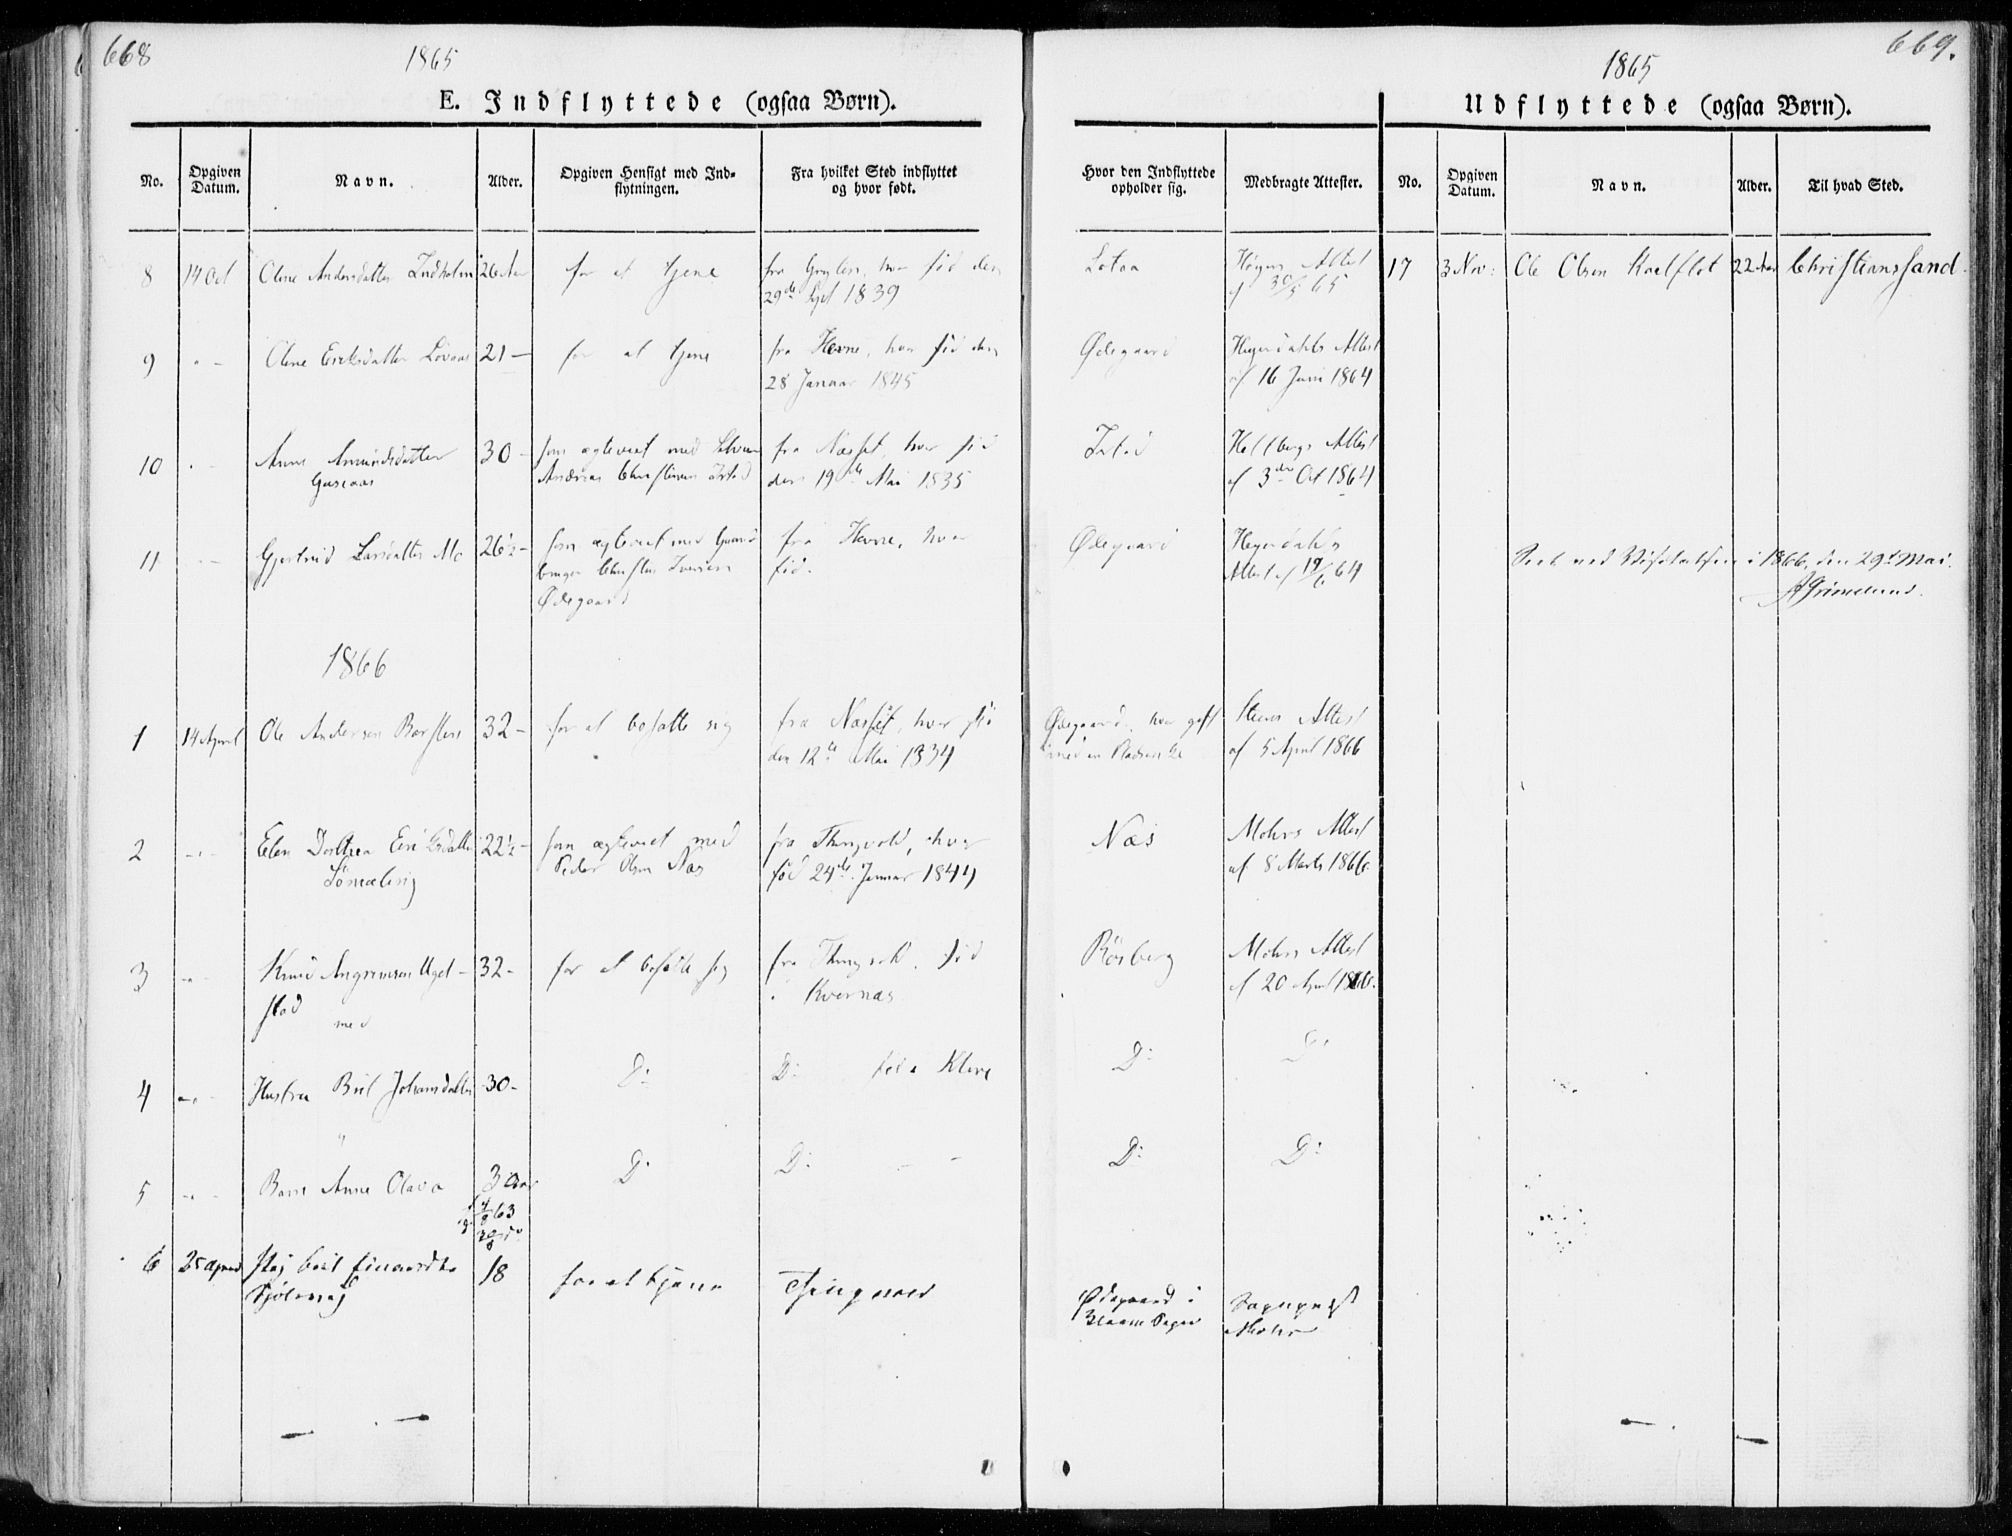 668
1865
E. Indflyttede (ogsaa Børn).
No.
Opgiven Datum.
Navn.
Alder.
Opgiven Hensigt med Ind-
flytningen.
Fra hvilket Sted indflyttet
og hvor født.
8 14 Oct Olene Andersdatter Lindholm 26 Aar for at tjene fra Grytten, hvor fød den
29de Sept 1839
9 " - Olene Eriksdatter Lovaas 21 - for at tjene fra Hevne, hvor fød den
28 Januar 1845
10 " - Anne Amundsdatter 30 - som ægteviet med fra Næsset, hvor fød
Andreas Christensen Istad den 19de Mai 1835
11 " - Gjertrud Larsdatter Mo 26½ - som ægteviet med Gaard- fra Hevne, hvor
bruger Christen Iversen fød.
Ødegaard
1866
1 14 April Ole Andersen Barsten 32 - for at bosætte sig fra Næsset, hvor fød
den 12te Mai 1834
2 - " - Elen Dorthea Eriksdatter 22½ - som ægteviet med fra Thingvold, hvor
Peder Olsen Næs fød 24de Januar 1844
3 - " - Knud Angrimsen Ugel- 32 - for at bosætte sig fra Thingvold, fød
stad i Kvernæs
med
4 - " - Hustru Brit Johansdatter 30 - Do Do fød i Kleve
"
5 - " - Barn Anne Olava 3 Aar Do Do - -
f 4/8 63
6 25 April Pig Berit 18 for at tjene Thingvold
669.
1865
Udflyttede (ogsaa Børn).
Hvor den Indflyttede
opholder sig.
Medbragte Attester.
No.
Opgiven Datum.
Navn.
Alder.
Til hvad Sted.
Attest 17 3 Nov: Ole Olsen 22 Aar Christianssand
af 30/5 65
Ødegaard Heyerdahls Attest
af 16 Juni 1864
Istad Hellbergs Attest
af 3die Oct 1864
Ødegaard Heyerdahls
Attest af 19/6 64
Seet ved Visitatsen i 1866, den 29de Mai.
AGrimelund.
Ødegaard, hvor gift Attest
med en af 5 April 1866
Næs Mohrs Attest
af 8 Marts 1866.
Rösberg Mohrs Attest
af 20 April 1866.
Do Do
Do Do
Ødegaard i Sognepræst
Mohr